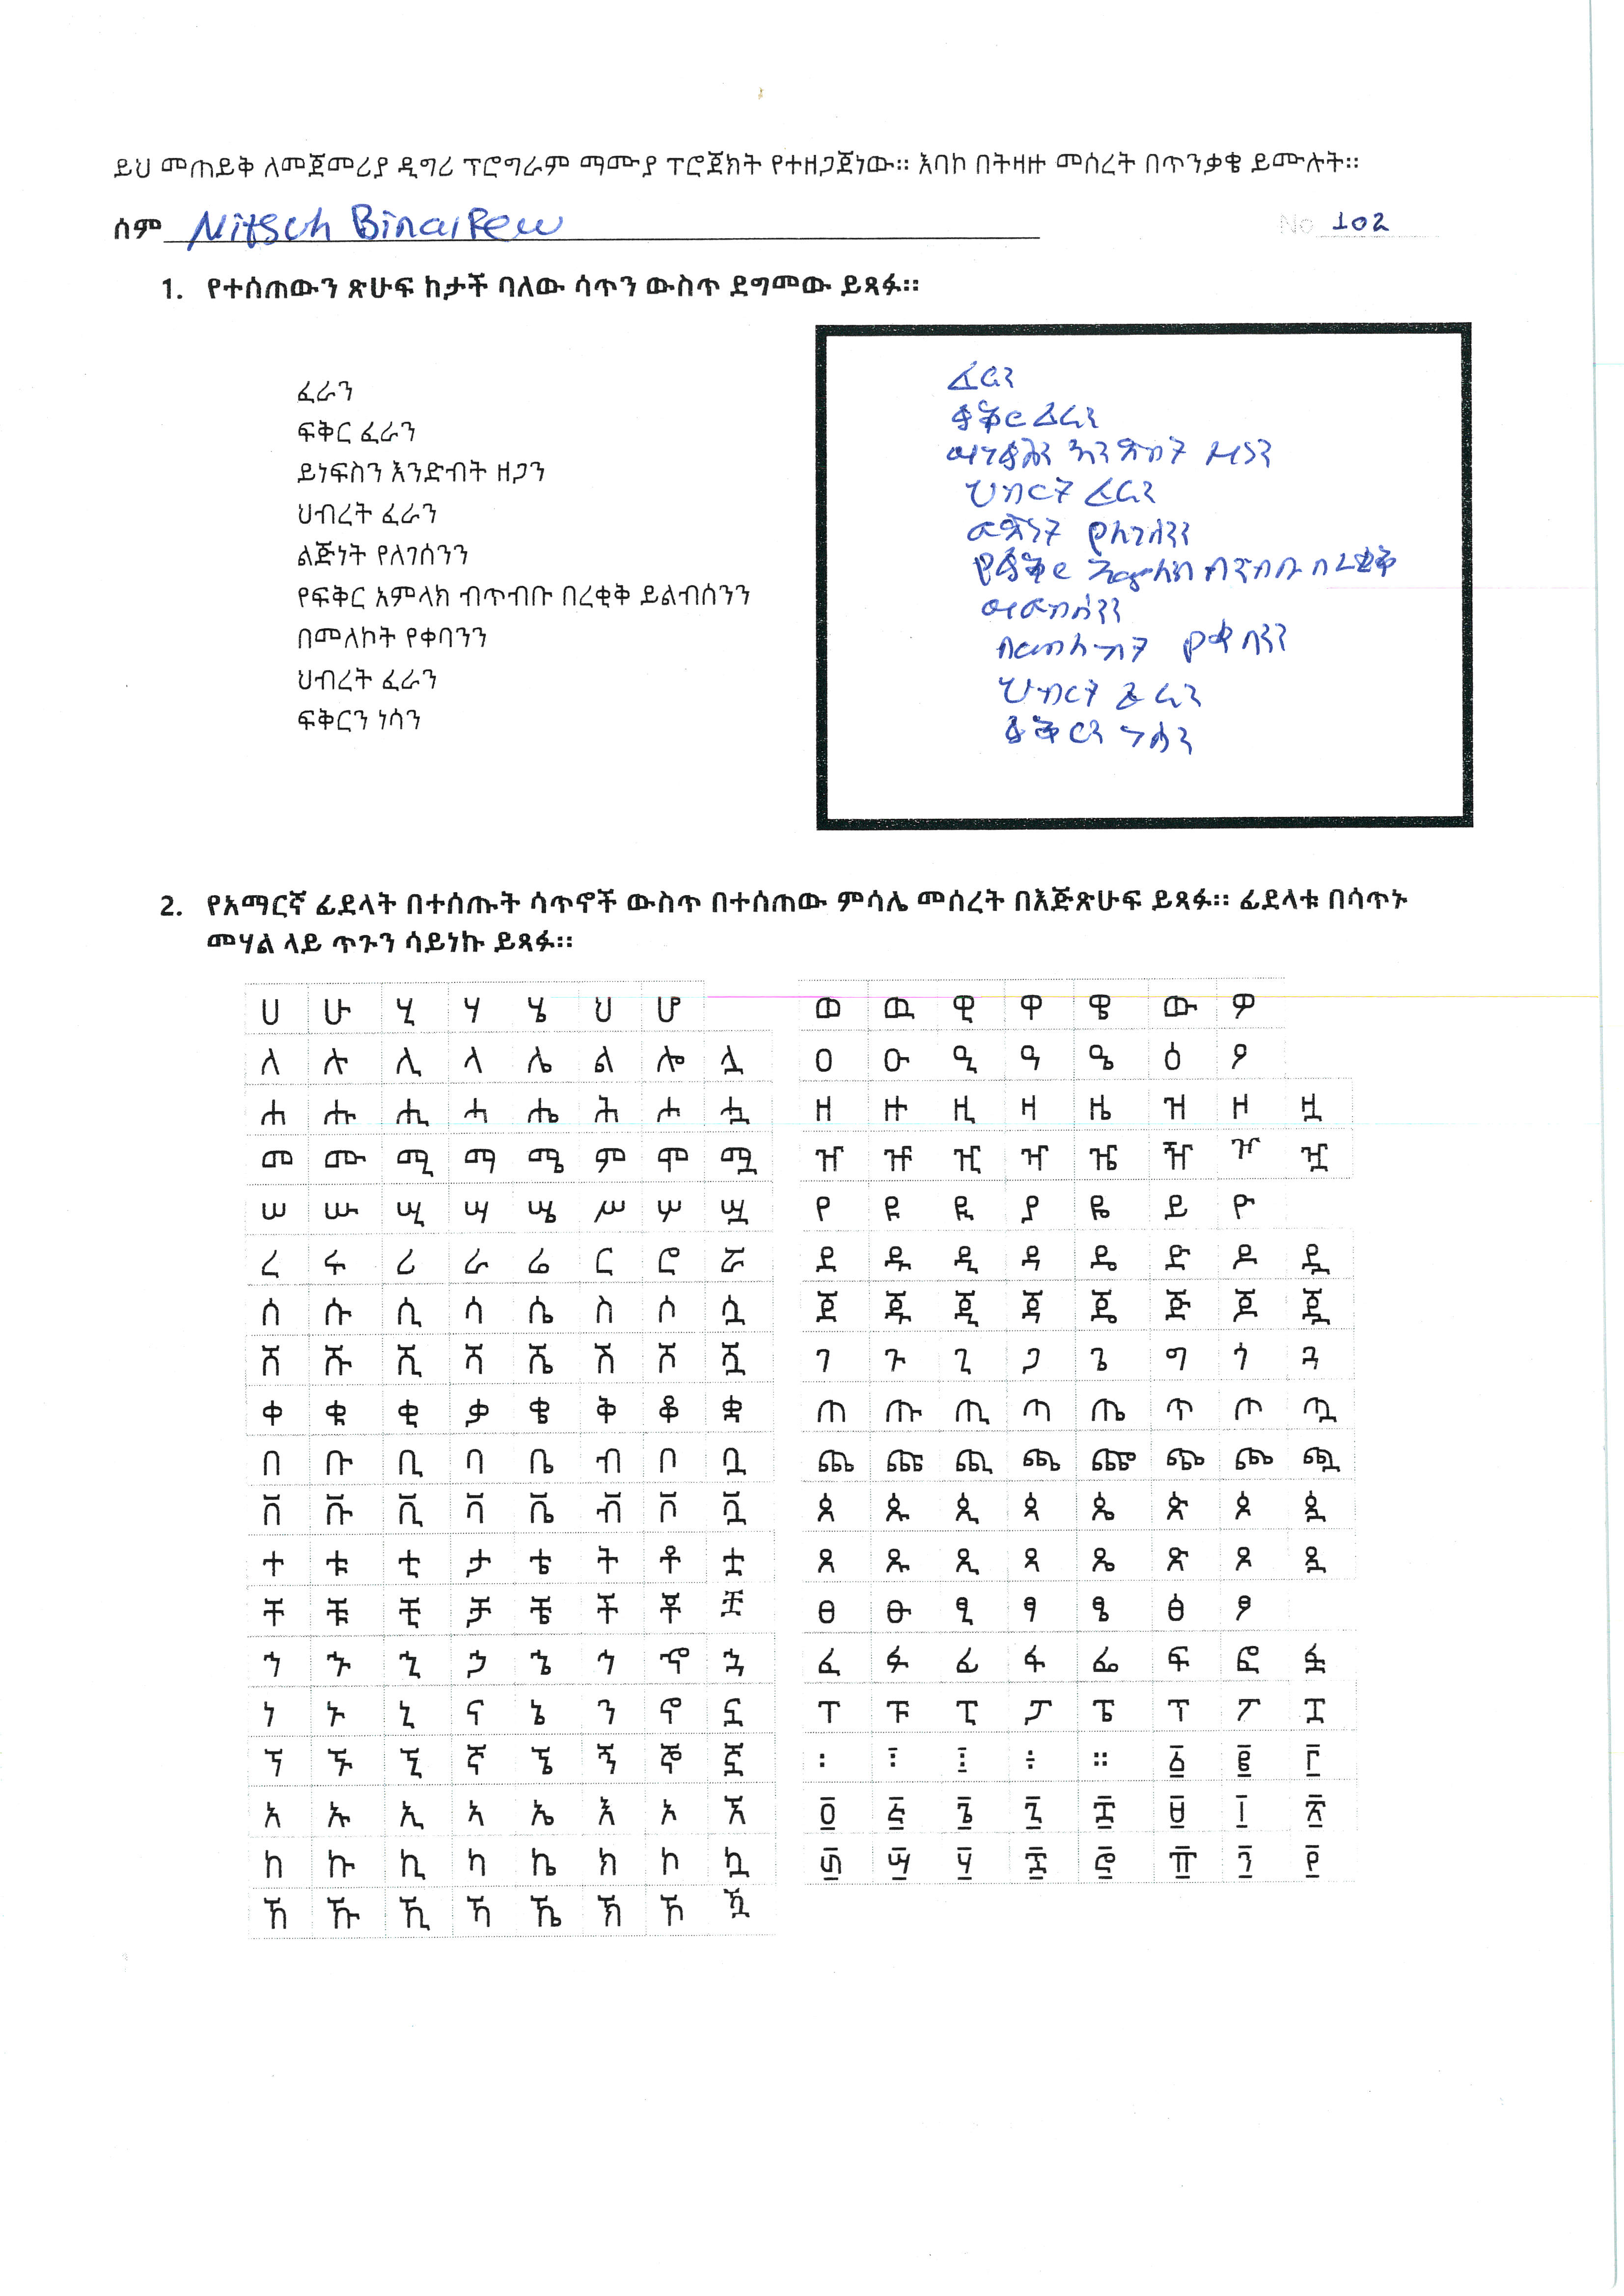 ይህ መጠይቅ ለመጀመሪያ ዲግሪ ፕሮግራም ማሙያ ፕሮጀክት የተዘጋጀነው። እባኮ በትዛዙ መሰረት በጥንቃቄ ይሙሉት።
ሰም Nitsch No 102
1. የተሰጠውን ጽሁፍ ከታች ባለው ሳጥን ውስጥ ደግመው ይጻፉ።
ፈራን
ፍቅር ፈራን
ይነፍስን እንድብት ዘጋን
ህብረት ፈራን
ልጅነት የለገሰንን
የፍቅር አምላክ ብጥብቡ በረቂቅ ይልብሰንን
በመለኮት የቀባንን
ህብረት ፈራን
ፍቅርን ነሳን
ፈራን
ፍቅር ፈራን
ይነፍስን እንድብት ዘጋን
ህብረት ፈራን
ልጅነት የለገሰንን
የፍቅር አምላክ ብጥብቡ በረቂቅ
ይልብሰንን
በመለኮት የቀባንን
ህብረት ፈራን
ፍቅርን ነሳን
2. የአማርኛ ፊደላት በተሰጡት ሳጥኖች ውስጥ በተሰጠው ምሳሌ መሰረት በእጅጽሁፍ ይጻፉ። ፊደላቱ በሳጥኑ
መሃል ላይ ጥጉን ሳይነኩ ይጻፉ።
ሀ ሁ ሂ ሃ ሄ ህ ሆ
ለ ሉ ሊ ላ ሌ ል ሎ ሏ
ሐ ሑ ሒ ሓ ሔ ሕ ሖ ሗ
መ ሙ ሚ ማ ሜ ም ሞ ሟ
ሠ ሡ ሢ ሣ ሤ ሥ ሦ ሧ
ረ ሩ ሪ ራ ሬ ር ሮ ሯ
ሰ ሱ ሲ ሳ ሴ ስ ሶ ሷ
ሸ ሹ ሺ ሻ ሼ ሽ ሾ ሿ
ቀ ቁ ቂ ቃ ቄ ቅ ቆ ቋ
በ ቡ ቢ ባ ቤ ብ ቦ ቧ
ቨ ቩ ቪ ቫ ቬ ቭ ቮ ቯ
ተ ቱ ቲ ታ ቴ ት ቶ ቷ
ቸ ቹ ቺ ቻ ቼ ች ቾ ቿ
ኀ ኁ ኂ ኃ ኄ ኅ ኆ ኋ
ነ ኑ ኒ ና ኔ ን ኖ ኗ
ኘ ኙ ኚ ኛ ኜ ኝ ኞ ኟ
አ ኡ ኢ ኣ ኤ እ ኦ ኧ
ከ ኩ ኪ ካ ኬ ክ ኮ ኳ
ኸ ኹ ኺ ኻ ኼ ኽ ኾ ዃ
ወ ዉ ዊ ዋ ዌ ው ዎ
ዐ ዑ ዒ ዓ ዔ ዕ ዖ
ዘ ዙ ዚ ዛ ዜ ዝ ዞ ዟ
ዠ ዡ ዢ ዣ ዤ ዥ ዦ ዧ
የ ዩ ዪ ያ ዬ ይ ዮ
ደ ዱ ዲ ዳ ዴ ድ ዶ ዷ
ጀ ጁ ጂ ጃ ጄ ጅ ጆ ጇ
ገ ጉ ጊ ጋ ጌ ግ ጎ ጓ
ጠ ጡ ጢ ጣ ጤ ጥ ጦ ጧ
ጨ ጩ ጪ ጫ ጬ ጭ ጮ ጯ
ጰ ጱ ጲ ጳ ጴ ጵ ጶ ጷ
ጸ ጹ ጺ ጻ ጼ ጽ ጾ ጿ
ፀ ፁ ፂ ፃ ፄ ፅ ፆ
ፈ ፉ ፊ ፋ ፌ ፍ ፎ ፏ
ፐ ፑ ፒ ፓ ፔ ፕ ፖ ፗ
፡ ፣ ፤ ፥ ። ፩ ፪ ፫
፬ ፭ ፮ ፯ ፰ ፱ ፲ ፳
፴ ፵ ፶ ፷ ፸ ፹ ፺ ፻